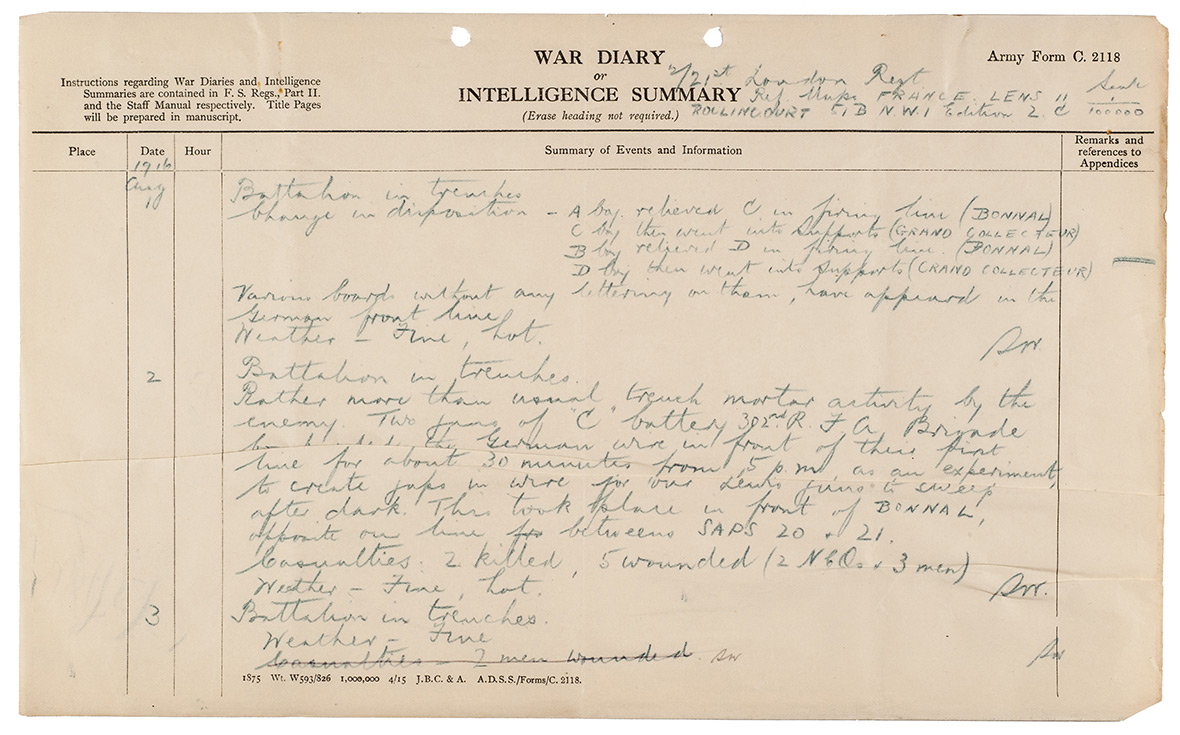 WAR DIARY
or
INTELLIGENCE SUMMARY
(Erase heading not required.)
Army Form C. 2118
Instructions regarding War Diaries and Intelligence
Summaries are contained in F. S. Regs., Part II.
and the Staff Manual respectively. Title Pages
will be prepared in manuscript.
2/21st London Regt
Ref Maps FRANCE LENS 11 Scale 1/100000
ROLLINCOURT 51B N.W.1 Edition 2.C
Place
Date
Hour
Summary of Events and Information
Remarks and
references to
Appendices
1916
Aug
1
Battalion in trenches
Change in disposition - A Coy. relieved C in firing line (BONNAL)
C Coy then went into supports (GRAND COLLECTEUR)
B Coy relieved D in firing line. (BONNAL)
D Coy then went into supports (GRAND COLLECTEUR)
Various boards without any lettering on them, have appeared in the
German front line
Weather - Fine, hot.
2
Battalion in trenches.
Rather more than usual trench mortar activity by the
enemy. Two guns of "C" battery 302nd R.F.A. Brigade
the German wire in front of their first
line for about 30 minutes from 5 p.m. as an experiment,
to create gaps in wire for our Lewis guns to sweep
after dark. This took place in front of BONNAL,
opposite our line between SAPS 20 & 21.
Casualties: 2 killed, 5 wounded (2 NCOs & 3 men)
Weather - Fine, hot.
3
Battalion in trenches.
Weather - Fine
Casualties - 2 men wounded.
1875 Wt. W593/826 1,000,000 4/15 J.B.C. & A. A.D.S.S./Forms/C. 2118.